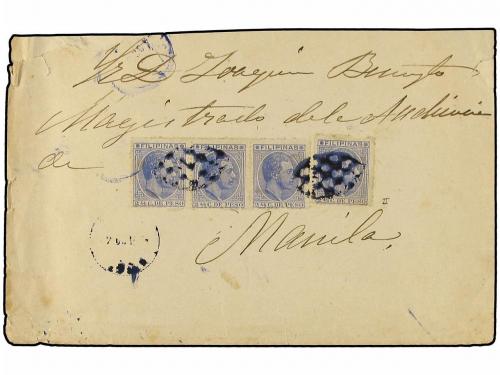 Sr D. Joaquin
Magistrado de la Audiencia
de
FILIPINAS FILIPINAS FILIPINAS FILIPINAS
2 4/8 C. DE PESO 2 4/8 C. DE PESO 2 4/8 C. DE PESO 2 4/8 C. DE PESO
Manila.